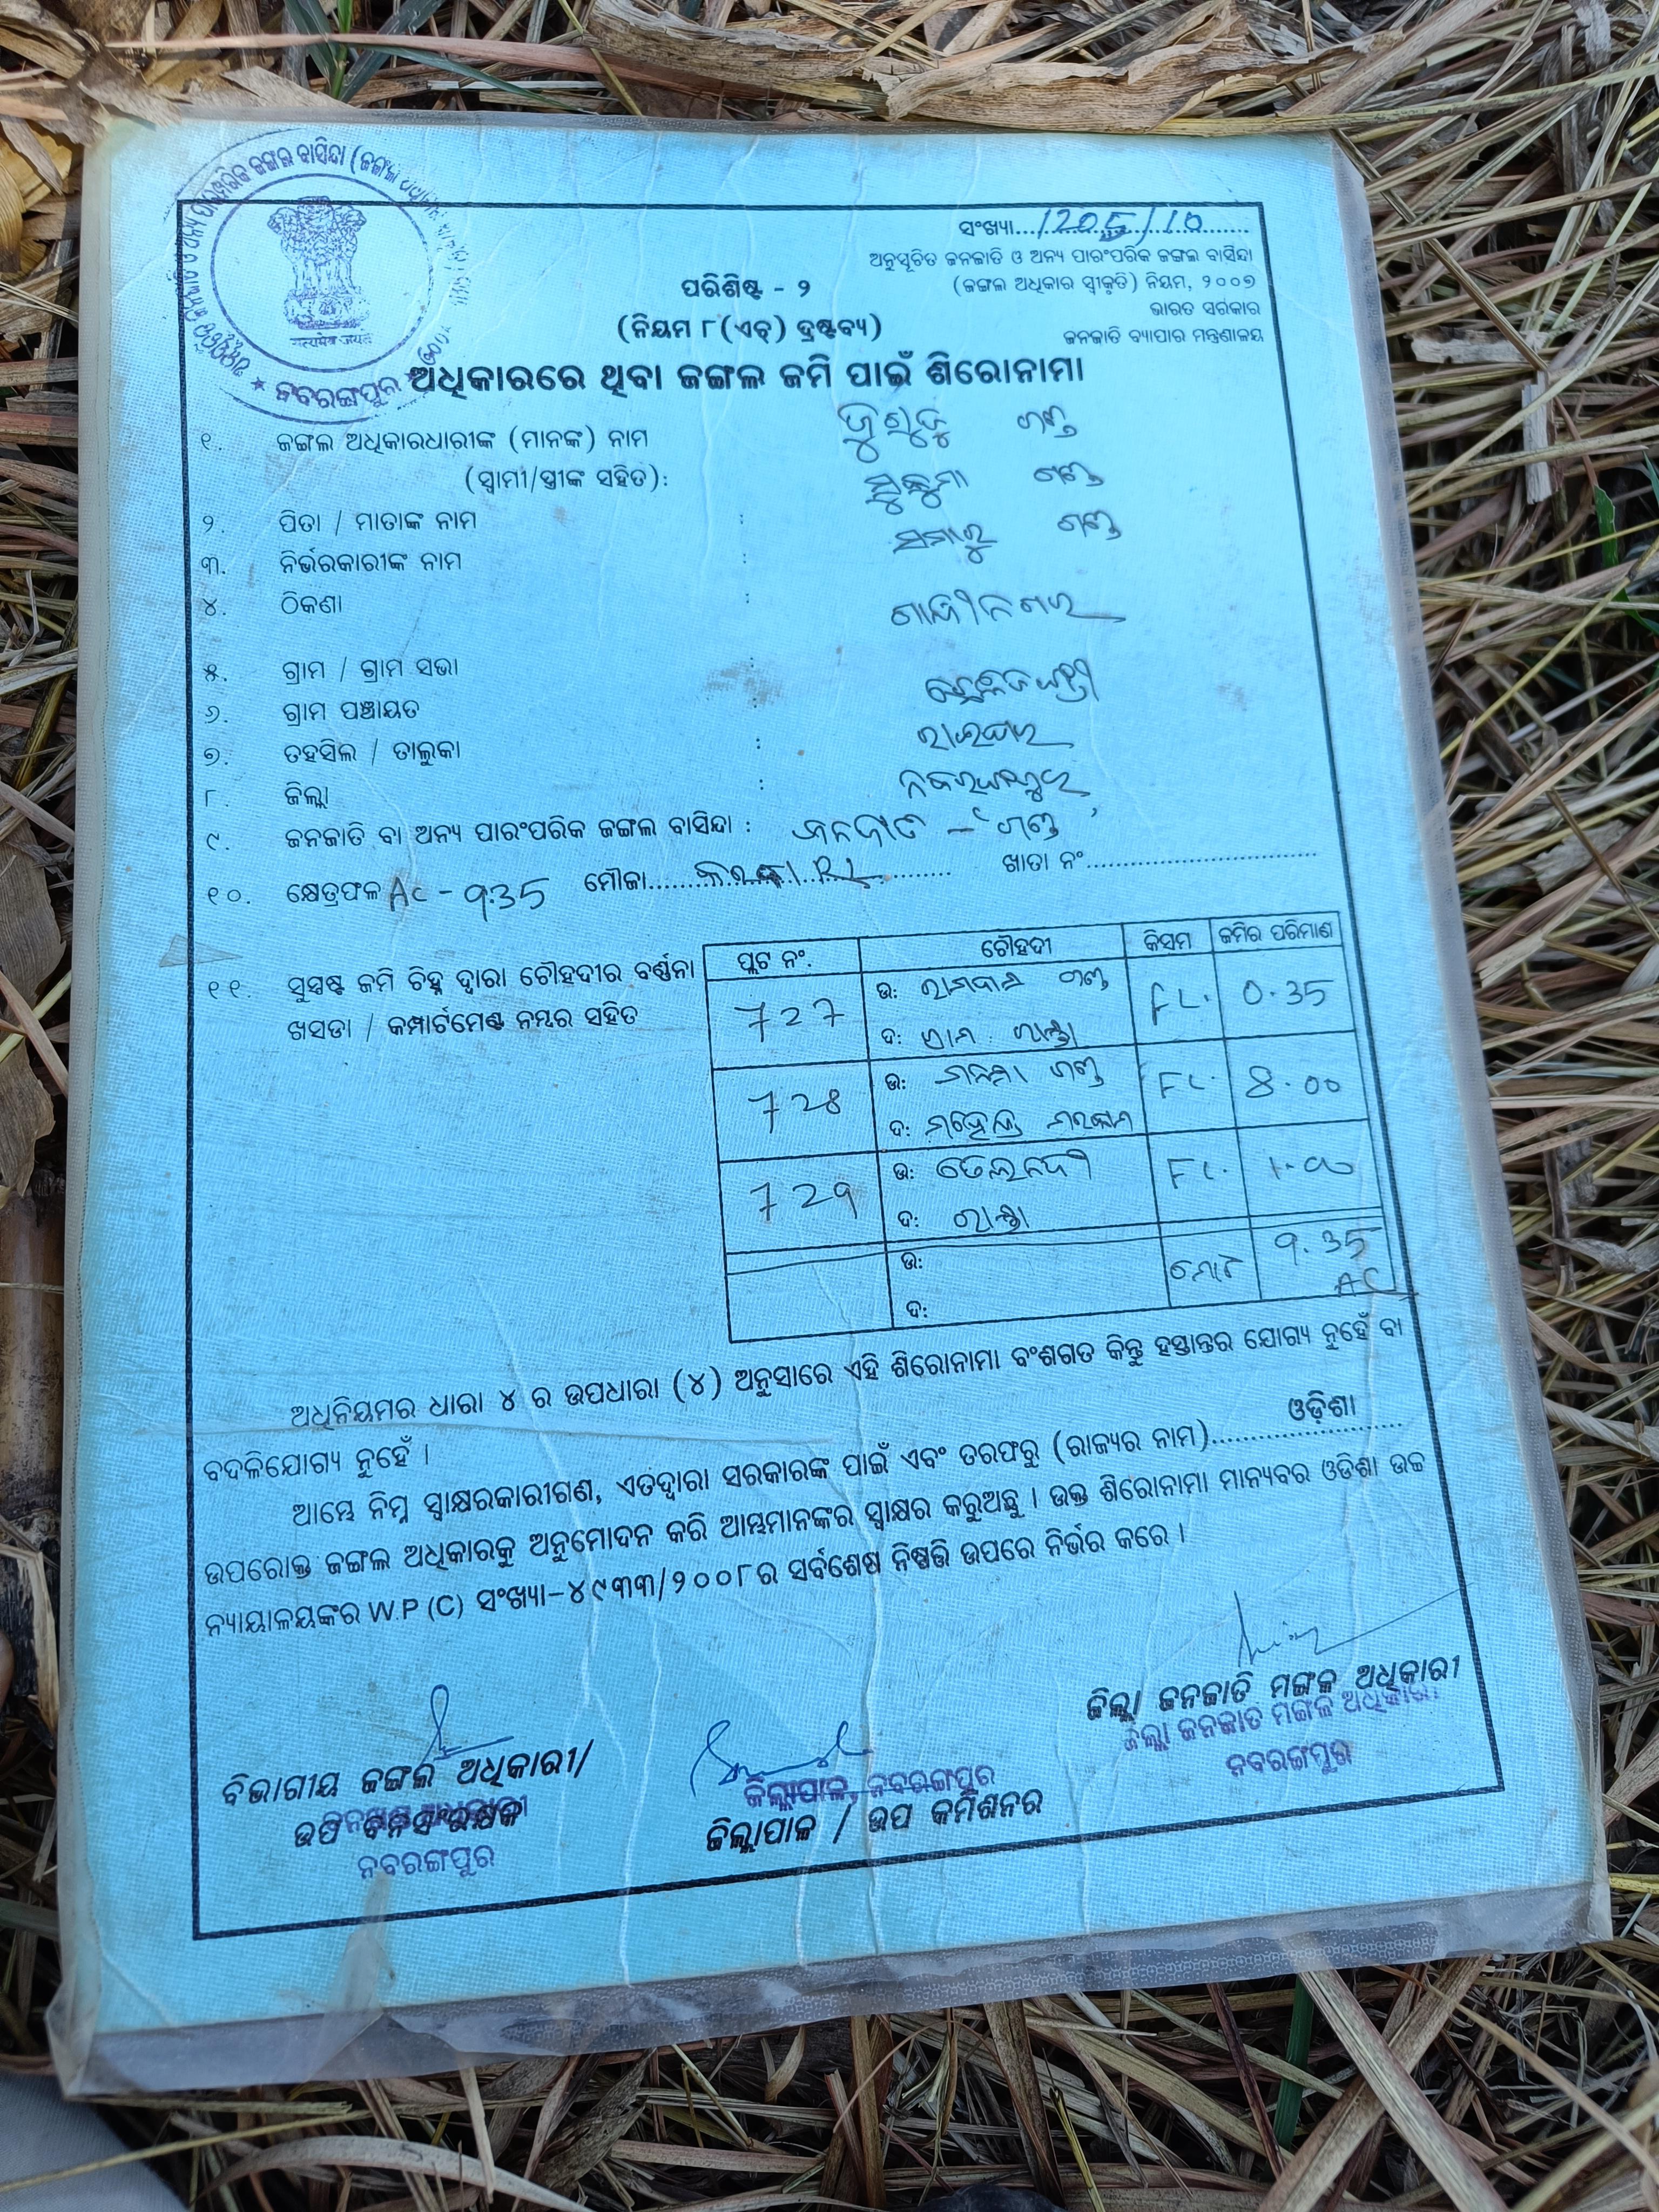 ସଂଖ୍ୟା....1205/10
ଅନୁସୂଚିତ ଜନଜାତି ଓ ଅନ୍ୟ ପାରଂପରିକ ଜଙ୍ଗଲ ବାସିନ୍ଦା
(ଜଙ୍ଗଲ ଅଧିକାର ସ୍ୱୀକୃତି) ନିୟମ, ୨୦୦୭
ଭାରତ ସରକାର
ଜନଜାତି ବ୍ୟାପାର ମନ୍ତ୍ରଣାଳୟ
ପରିଶିଷ୍ଟ - ୨
(ନିୟମ ୮(ଏଚ୍) ଦ୍ରଷ୍ଟବ୍ୟ)
ଅଧିକାରରେ ଥିବା ଜଙ୍ଗଲ ଜମି ପାଇଁ ଶିରୋନାମା
ନବରଙ୍ଗପୁର
୧. ଜଙ୍ଗଲ ଅଧିକାରଧାରୀଙ୍କ (ମାନଙ୍କ) ନାମ ଗଣ୍ଡ
(ସ୍ୱାମୀ/ସ୍ତ୍ରୀଙ୍କ ସହିତ): ଗଣ୍ଡ
୨. ପିତା / ମାତାଙ୍କ ନାମ : ସମାରୁ ଗଣ୍ଡ
୩. ନିର୍ଭରକାରୀଙ୍କ ନାମ :
୪. ଠିକଣା : ଗାନ୍ଧୀନଗର
୫. ଗ୍ରାମ / ଗ୍ରାମ ସଭା :
୬. ଗ୍ରାମ ପଞ୍ଚାୟତ :
୭. ତହସିଲ / ତାଲୁକା : ରାଇଘର
୮. ଜିଲ୍ଲା : ନବରଙ୍ଗପୁର
୯. ଜନଜାତି ବା ଅନ୍ୟ ପାରଂପରିକ ଜଙ୍ଗଲ ବାସିନ୍ଦା : ଜନଜାତି - 'ଗଣ୍ଡ'
୧୦. କ୍ଷେତ୍ରଫଳ Ac - 9.35 ମୌଜା.... RF ଖାତା ନଂ....
୧୧. ସୁସ୍ପଷ୍ଟ ଜମି ଚିହ୍ନ ଦ୍ୱାରା ଚୌହଦୀର ବର୍ଣ୍ଣନା
ଖସଡା / କମ୍ପାର୍ଟମେଣ୍ଟ ନମ୍ବର ସହିତ
ପ୍ଲଟ ନଂ. ଚୌହଦୀ କିସମ ଜମିର ପରିମାଣ
727 ଉ: ଗଣ୍ଡ FL. 0.35
ଦ: ଗ୍ରାମ ରାସ୍ତା
728 ଉ: ଗଣ୍ଡ FL. 8.00
ଦ: ମହେନ୍ଦ୍ର ମରକାମ
729 ଉ: ତେଲନଦୀ FL. 1.00
ଦ: ରାସ୍ତା
ଉ: ମୋଟ 9.35 AC
ଦ:
ଅଧିନିୟମର ଧାରା ୪ ର ଉପଧାରା (୪) ଅନୁସାରେ ଏହି ଶିରୋନାମା ବଂଶଗତ କିନ୍ତୁ ହସ୍ତାନ୍ତର ଯୋଗ୍ୟ ନୁହେଁ ବା
ବଦଳିଯୋଗ୍ୟ ନୁହେଁ ।
ଆମ୍ଭେ ନିମ୍ନ ସ୍ୱାକ୍ଷରକାରୀଗଣ, ଏତଦ୍ୱାରା ସରକାରଙ୍କ ପାଇଁ ଏବଂ ତରଫରୁ (ରାଜ୍ୟର ନାମ)....ଓଡ଼ିଶା....
ଉପରୋକ୍ତ ଜଙ୍ଗଲ ଅଧିକାରକୁ ଅନୁମୋଦନ କରି ଆମ୍ଭମାନଙ୍କର ସ୍ୱାକ୍ଷର କରୁଅଛୁ । ଉକ୍ତ ଶିରୋନାମା ମାନ୍ୟବର ଓଡିଶା ଉଚ୍ଚ
ନ୍ୟାୟାଳୟଙ୍କର W.P (C) ସଂଖ୍ୟା-୪୯୩୩/୨୦୦୮ର ସର୍ବଶେଷ ନିଷ୍ପତ୍ତି ଉପରେ ନିର୍ଭର କରେ ।
ଜିଲ୍ଲା ଜନଜାତି ମଙ୍ଗଳ ଅଧିକାରୀ
ଜିଲ୍ଲା ଜନଜାତି ମଙ୍ଗଳ ଅଧିକାରୀ
ନବରଙ୍ଗପୁର
ବିଭାଗୀୟ ଜଙ୍ଗଲ ଅଧିକାରୀ/
ଉପ ବନସଂରକ୍ଷକ
ନବରଙ୍ଗପୁର
ଜିଲ୍ଲାପାଳ, ନବରଙ୍ଗପୁର
ଜିଲ୍ଲାପାଳ / ଉପ କମିଶନର